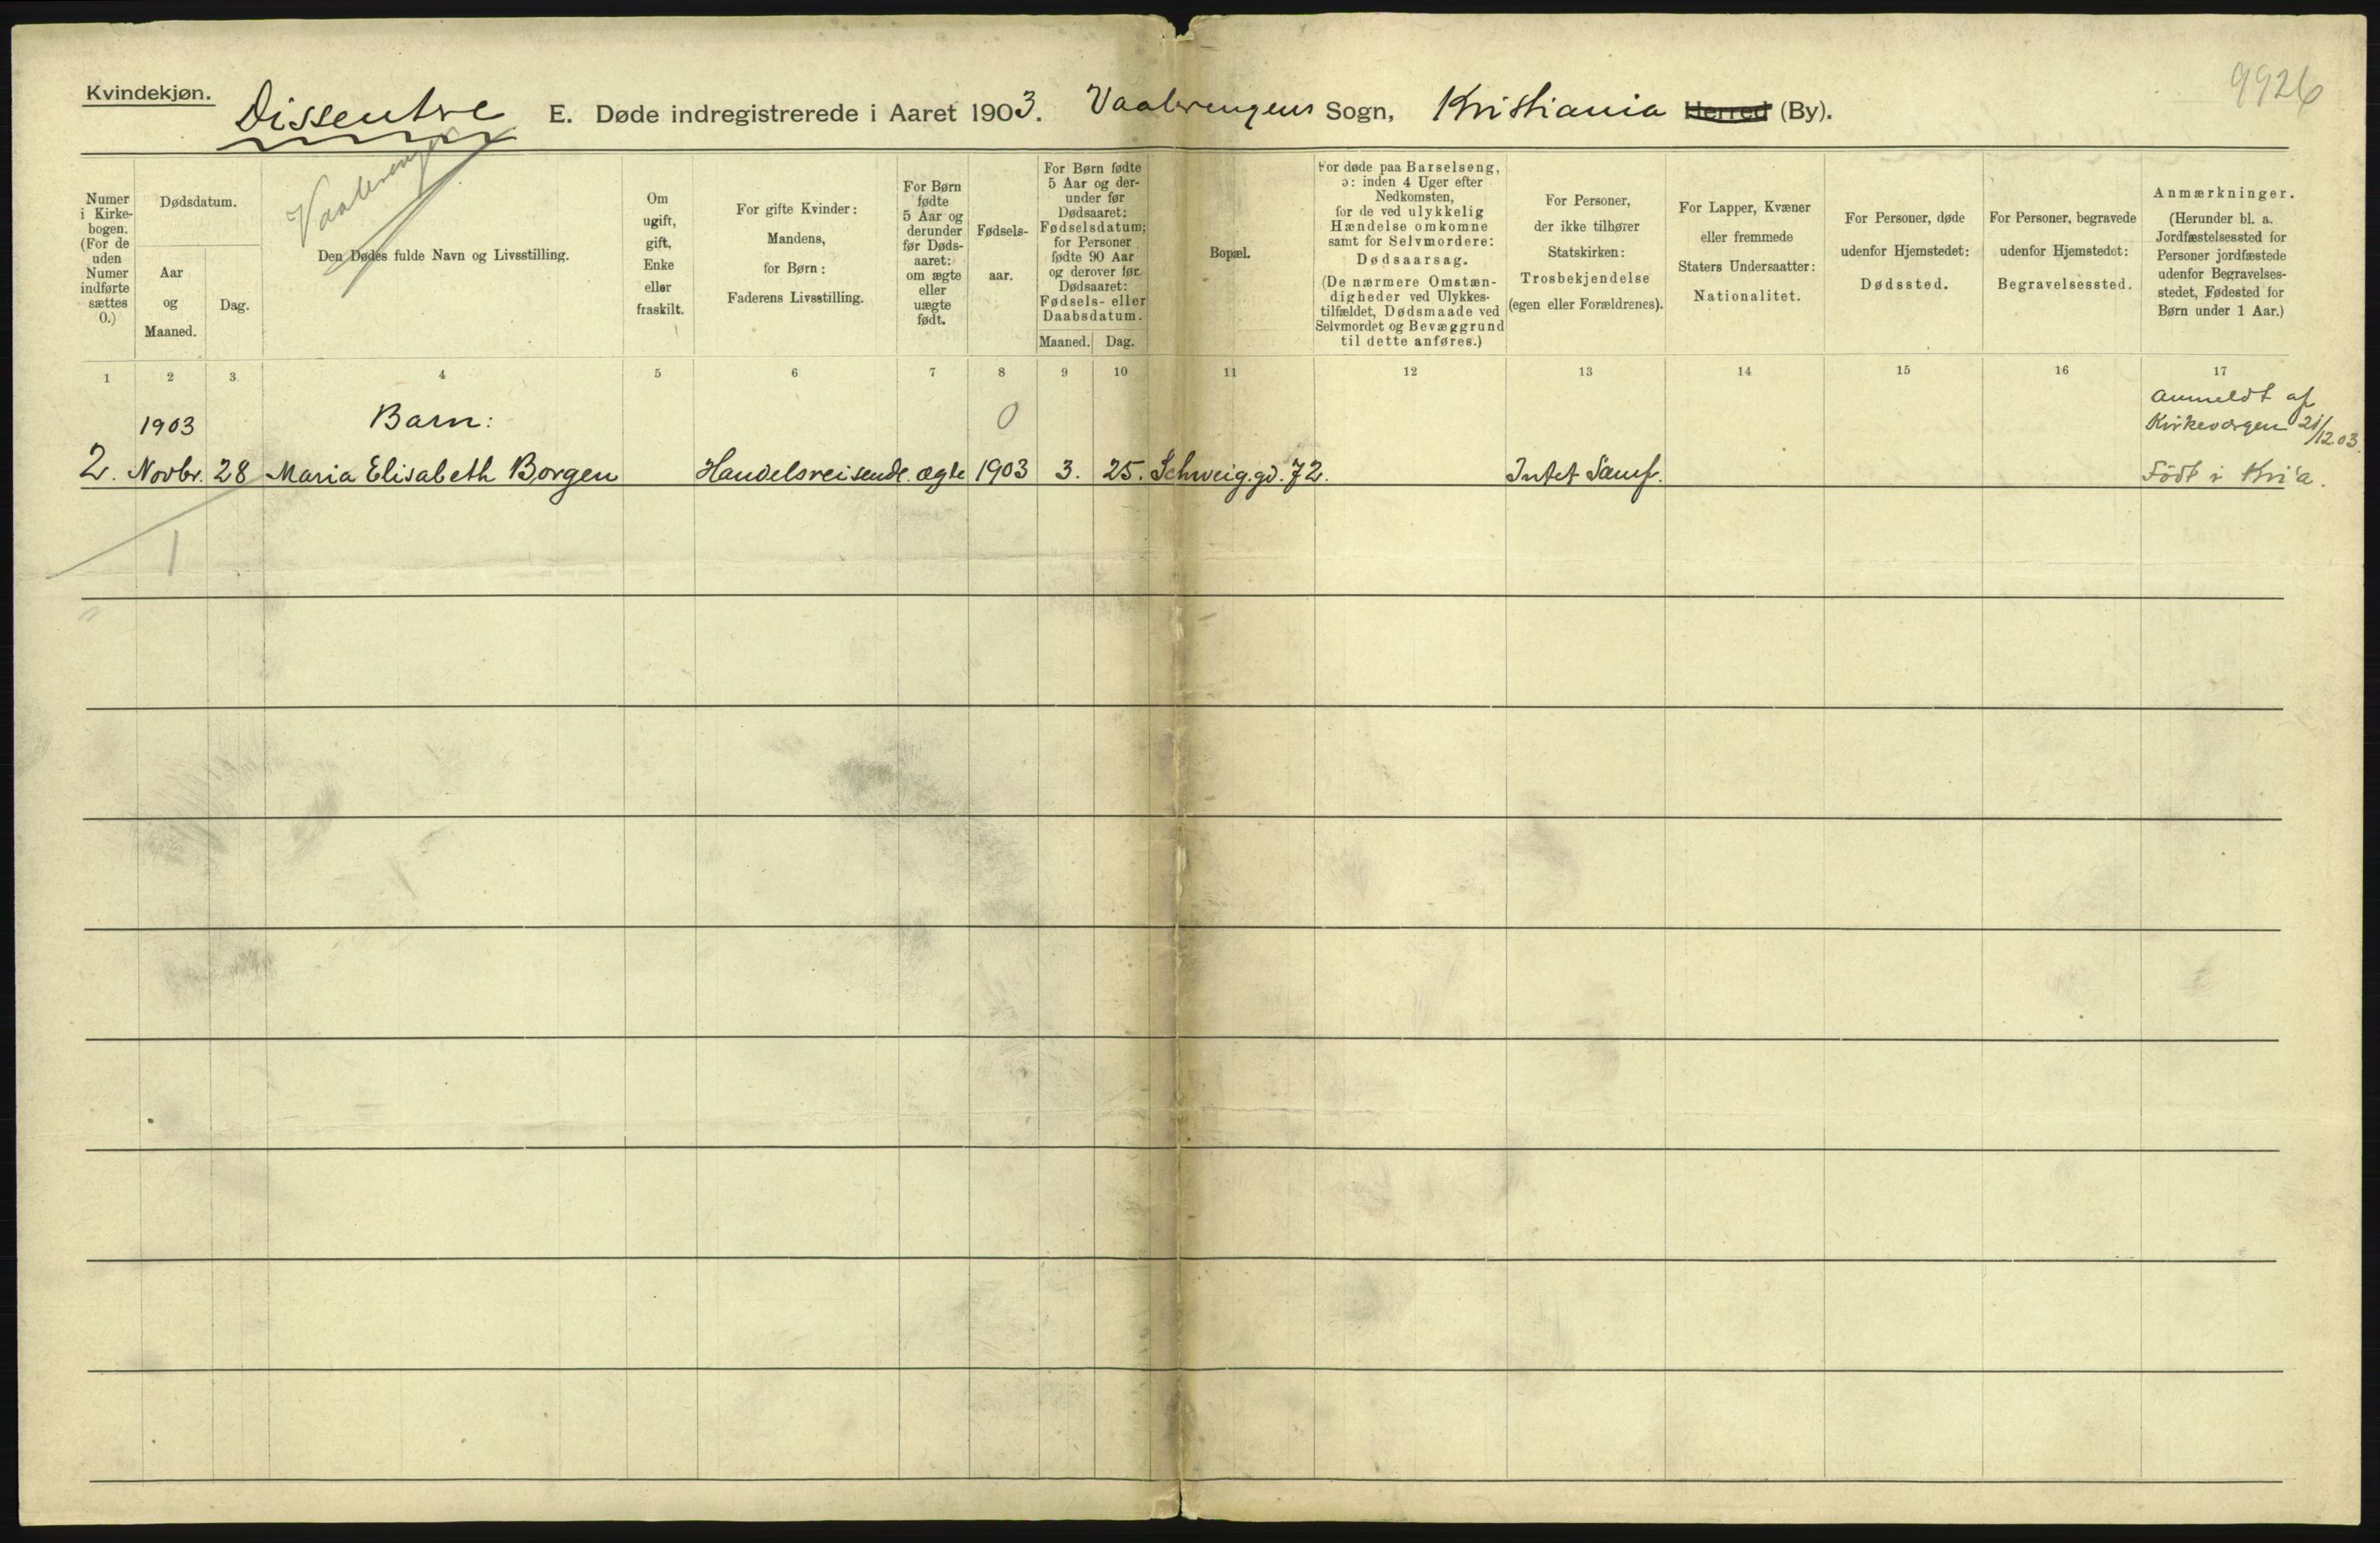 Kvindekjøn.
Dissentre E. Døde indregistrerede i Aaret 1903. Vaalerengens Sogn, Kristiania Herred (By).
9926
Vaalerengen
Numer
i Kirke-
bogen.
(For de
uden
Numer
indførte
sættes
0.)
Dødsdatum.
Aar
og
Maaned.
Dag.
Den Dødes fulde Navn og Livsstilling.
Om
ugift,
gift,
Enke
eller
fraskilt.
For gifte Kvinder:
Mandens,
for Børn:
Faderens Livsstilling.
For Børn
fødte
5 Aar og
derunder
før Døds-
aaret:
om ægte
eller
uægte
født.
Fødsels-
aar.
For Børn fødte
5 Aar og der-
under før
Dødsaaret:
Fødselsdatum;
for Personer
fødte 90 Aar
og derover før
Dødsaaret:
Fødsels- eller
Daabsdatum.
Maaned. Dag.
Bopæl.
For døde paa Barselseng,
ɔ: inden 4 Uger efter
Nedkomsten,
for de ved ulykkelig
Hændelse omkomne
samt for Selvmordere:
Dødsaarsag.
(De nærmere Omstæn-
digheder ved Ulykkes-
tilfældet, Dødsmaade ved
Selvmordet og Bevæggrund
til dette anføres.)
For Personer,
der ikke tilhører
Statskirken:
Trosbekjendelse
(egen eller Forældrenes).
For Lapper, Kvæner
eller fremmede
Staters Undersaatter:
Nationalitet.
For Personer, døde
udenfor Hjemstedet:
Dødssted.
For Personer, begravede
udenfor Hjemstedet:
Begravelsessted.
Anmærkninger.
(Herunder bl. a.
Jordfæstelsessted for
Personer jordfæstede
udenfor Begravelses-
stedet, Fødested for
Børn under 1 Aar.)
1 2 3 4 5 6 7 8 9 10 11 12 13 14 15 16 17
1903 Barn: 0
Anmeldt af
Kirkeværgen 21/12 03.
2. Novbr. 28 Maria Elisabeth Borgen Handelsreisende. ægte 1903 3. 25. Schweig.gd. 72. Intet Samf. Født i Kri'a.
1